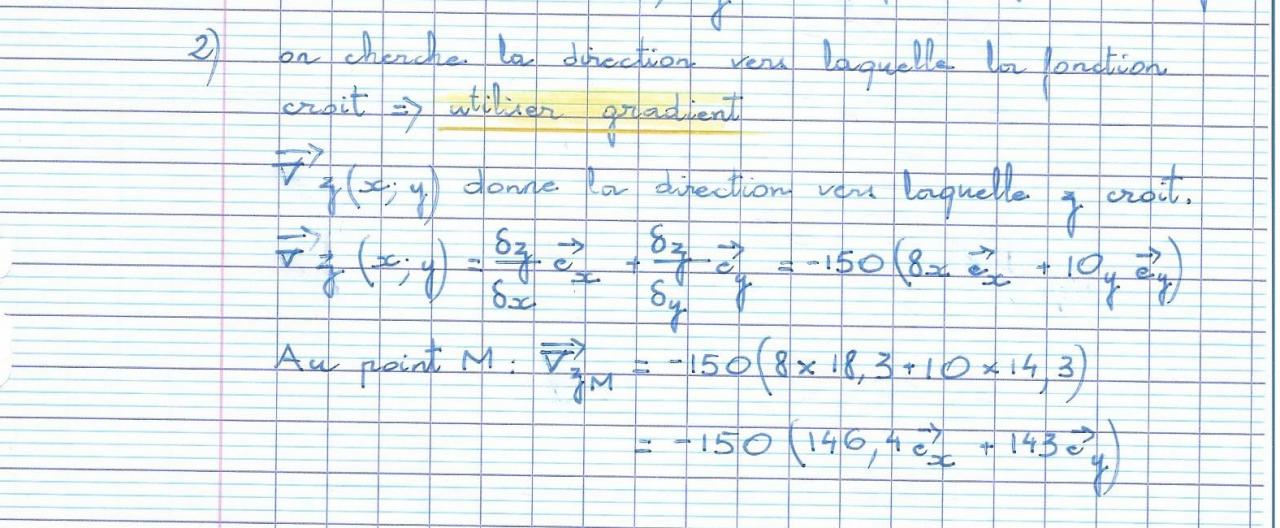 2) on cherche la direction vers laquelle la fonction
croit => utiliser gradient
∇⃗ z(x; y) donne la direction vers laquelle z croit.
∇⃗ z (x; y) = δz/δx e⃗x + δz/δy e⃗y = -150 (8x e⃗x + 10y e⃗y)
Au point M : ∇⃗zM = -150 (8 × 18,3 + 10 × 14,3)
= -150 (146,4 e⃗x + 143 e⃗y)